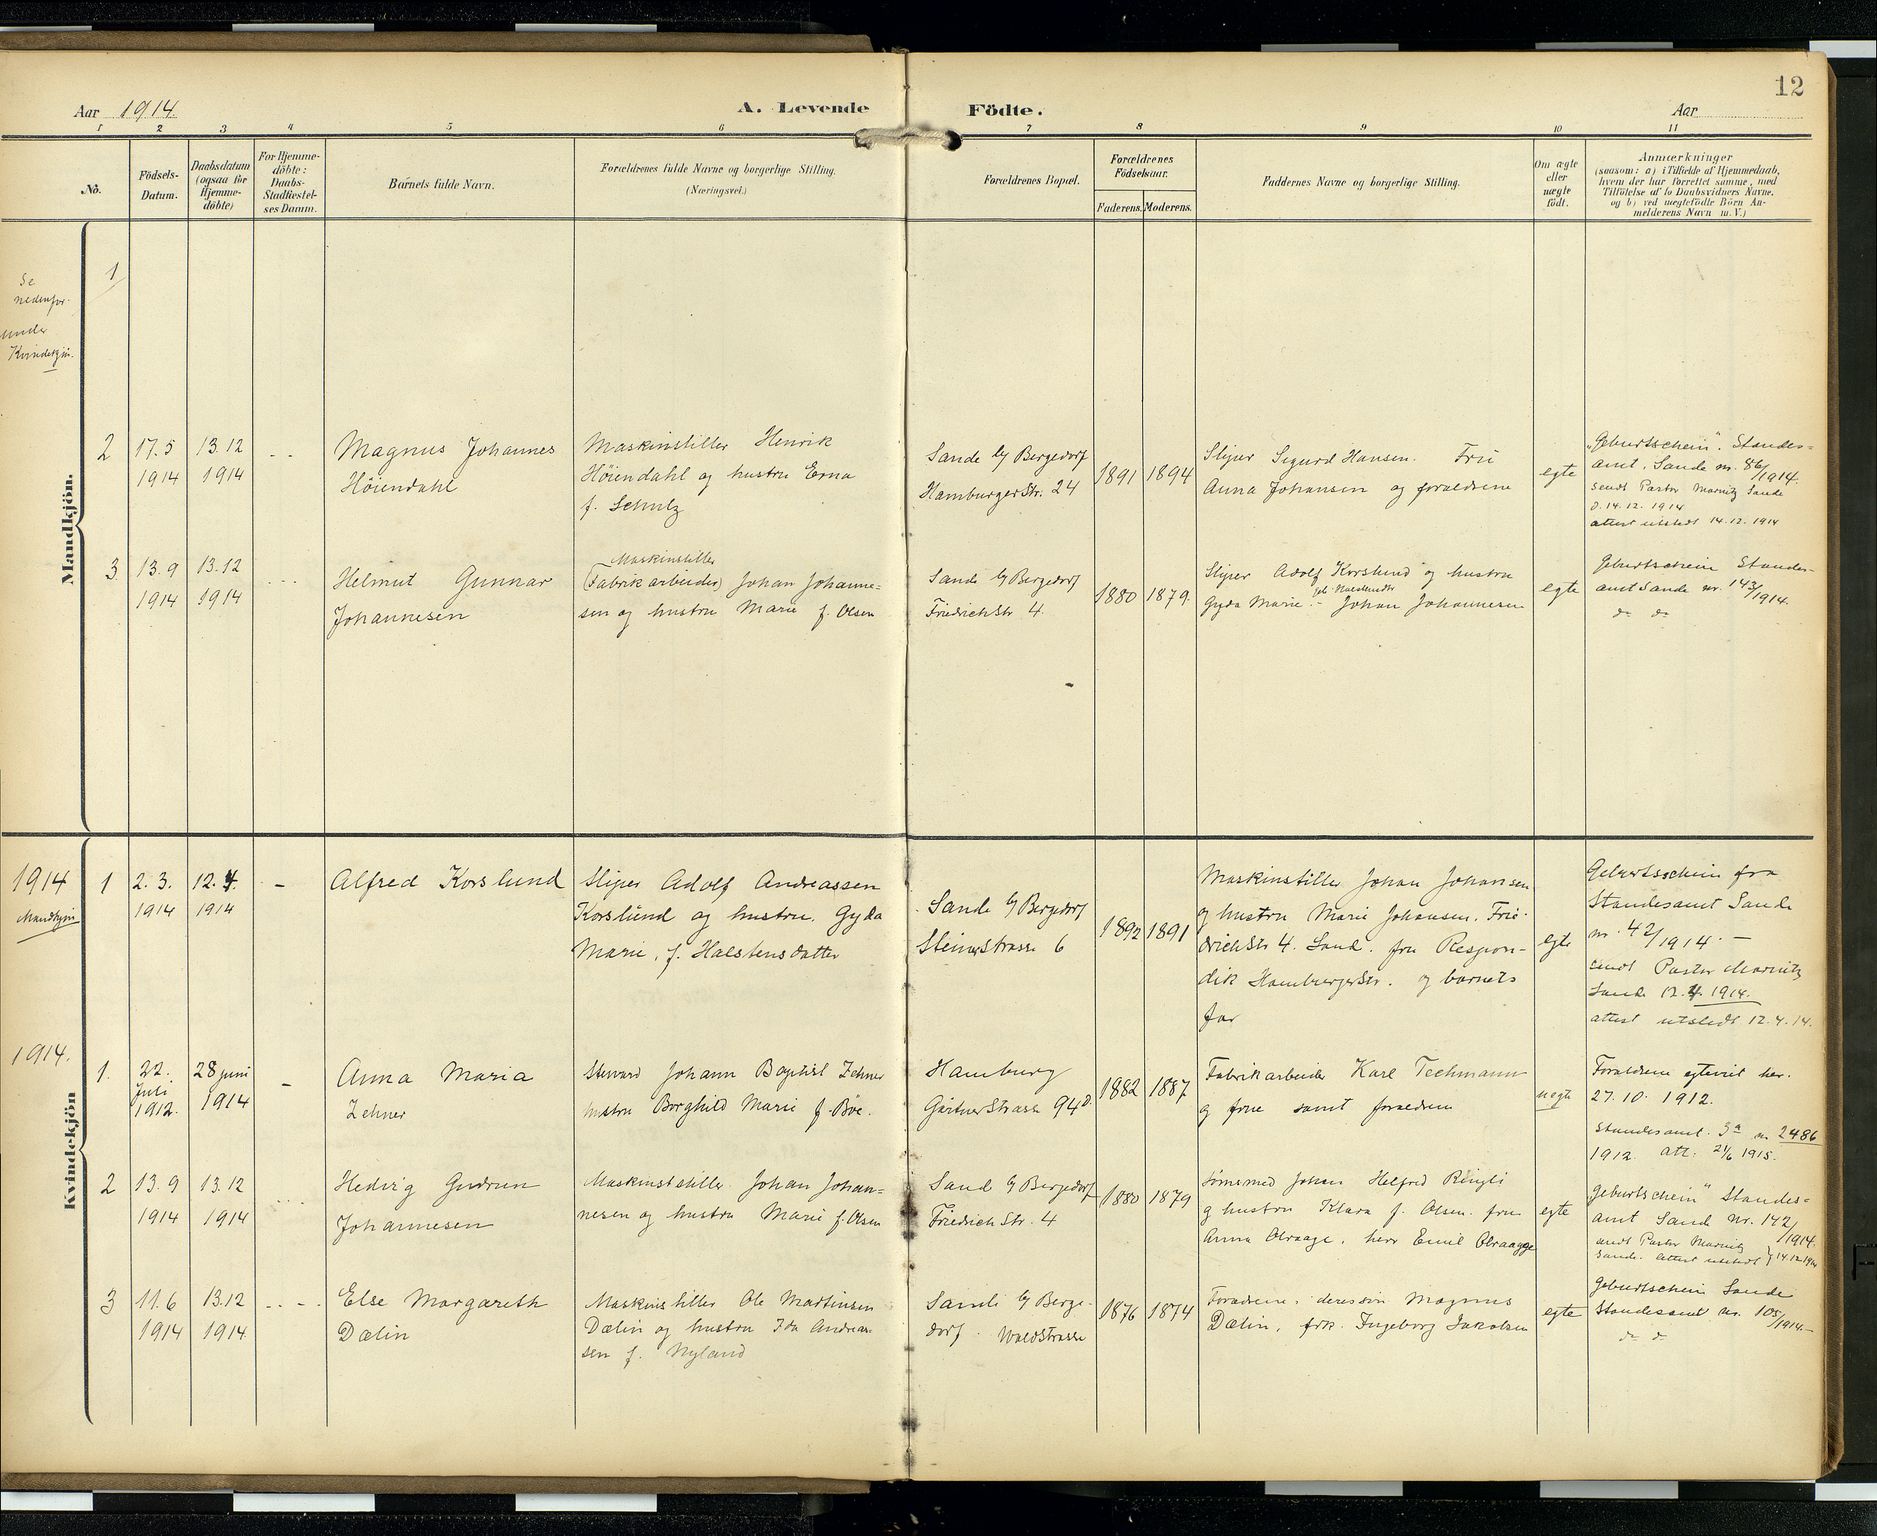 12
Aar 1914.
A. Levende Födte.
Aar
1 2 3 4 5 6 7 8 9 10 11
No.
Födsels-Datum.
Daabsdatum (ogsaa for Hjemme-döbte)
For Hjemme-döbte: Daabs-Stadfæstel-ses Datum.
Barnets fulde Navn.
Forældrenes fulde Navne og borgerlige Stilling.
(Næringsvei.)
Forældrenes Bopæl.
Forældrenes Födselsaar.
Faderens. Moderens.
Faddernes Navne og borgerlige Stilling.
Om ægte eller uægte födt.
Anmærkninger
(saasom: a) i Tilfælde af Hjemmedaab,
hvem der har forrettet samme, med
Tilföielse af to Daabsvidners Navne,
og b) ved uægtefödte Börn An-
melderens Navn m. V.)
Mandkjön.
Se
nedenfor
under
Kvindekjön.
1
2
17.5
1914
13.12
1914
Magnus Johannes
Höiendahl
Maskinstiller Henrik
Höiendahl og hustru Erna
f. Schulz
Sande b/ Bergedorf
Hamburger Str. 24
1891 1894
Sliper Sigurd Hansen. Fru
Anna Johansen og forældrene
egte
"Geburtschein". Standes-
amt. Sande nr. 86/1914.
sendt Pastor Marnitz Sande
d. 14.12.1914
attest utstedt 14.12.1914
3
13.9
1914
13.12
1914
Helmut Gunnar
Johannesen
Maskinstiller
(Fabrikarbeider) Johan Johanne-
sen og hustru Marie f. Olsen
Sande b/ Bergedorf
Friedrich Str. 4.
1880 1879
Sliper Adolf Korslund og hustru
Gyda Marie - Johan Johannesen
egte
Geburtschein Standes-
amt Sande nr. 143/1914.
do do
1914
Mandkjön
1
2.3.
1914
12.4.
1914
-
Alfred Korslund
Sliper Adolf Andreassen
Korslund og hustru. Gyda
Marie, f. Halstensdatter
Sande b/ Bergedorf
Steinerstrasse 6
1892 1891
Maskinstiller Johan Johansen
og hustru Marie Johansen. Frie-
drichStr 4. Sand. fru Respon-
dik HamburgerStr. og barnets
far
egte
Geburtsschein fra
Standesamt Sande
nr. 42/1914. -
sendt Pastor Marnitz
Sande 12.4.1914.
attest utstedt 12.4.14.
1914.
Kvindekjön
1.
22.
Juli
1912.
28 juni
1914
-
Anna Maria
Zehner
Steward Johann Baptist Zehner
hustru Borghild Marie f. Böe.
Hamburg
Gärtner Strasse 94
1882 1887
Fabrikarbeider Karl Techmann
og frue samt foraldrene
uegte
Foraldrene egteviet her.
27.10.1912.
Standesamt. 3a nr. 2486
1912. att. 21/6 1915.
2
13.9
1914
13.12
1914
Hedvig Gudrun
Johannesen
Maskinstiller Johan Johan-
nesen og hustru Marie f. Olsen
Sand b/ Bergedorf
Friedrich Str. 4
1880 1879
Johan Helfred Ringli
og hustru Klara f. Olsen. fru
Anna Olraage. herr Emil Olraagge
egte
Geburtschein" Standes-
amt Sand nr. 142/1914.
sendt Pastor Marnitz
Sande. attest utstedt } 14.12.1914
3
11.6
1914
13.12
1914
Else Margareth
Dælin
Maskinstiller Ole Martinsen
Dælin og hustru Ida Andreas-
sen f. Nyland
Sande b/ Berge-
dorf. Waldstrasse
1876 1874
Foraldrene. deres sön Magnus
Dælin, frk. Ingeborg Jakobsen
egte
Geburtschein Sande
Standesamt nr. 105/1914.-
do do